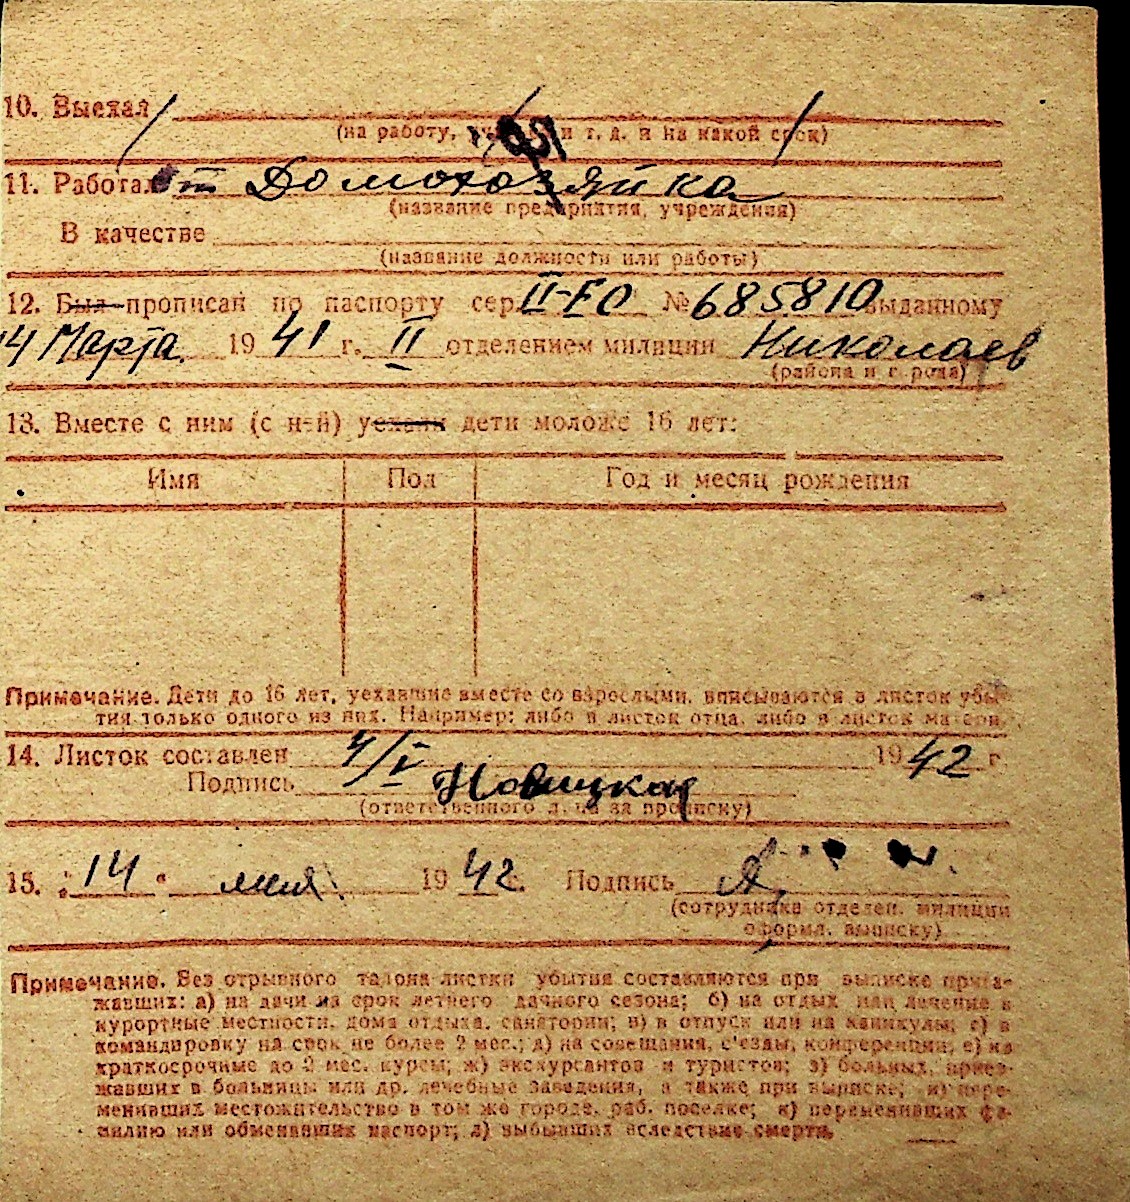 10. Выехал
(на работу, и т. д. и на какой срок)
11. Работал Домохозяйка
(название предприятия, учреждения)
В качестве
(название должности или работы)
12. Был прописан по паспорту сер. II-ЕО № 685810 выданному
14 Марта 1941 г. II отделением милиции Николаев
(района и города)
13. Вместе с ним (с ней) уехали дети моложе 16 лет:
Имя Пол Год и месяц рождения
Примечание. Дети до 16 лет, уехавшие вместе со взрослыми, вписываются в листок убы-
тия только одного из них. Например: либо в листок отца, либо в листок матери.
14. Листок составлен 4/V 1942 г
Подпись Новицкая
(ответственного лица за прописку)
15. "14" мая 1942. Подпись
(сотрудника отделен. милиции
оформл. выписку)
Примечание. Без отрывного талона листки убытия составляются при выписке приез-
жавших: а) на дачи на срок летнего дачного сезона; б) на отдых или лечение в
курортные местности, дома отдыха, санатории; в) в отпуск или на каникулы; г) в
командировку на срок не более 2 мес.; д) на совещания, с'езды, конференции; е) на
краткосрочные до 2 мес. курсы; ж) экскурсантов и туристов; з) больных, приез-
жавших в больницы или др. лечебные заведения, а также при выписке; и) пере-
менивших местожительство в том же городе, раб. поселке; к) переменивших фа-
милию или обменявших паспорт; л) выбывших вследствие смерти.